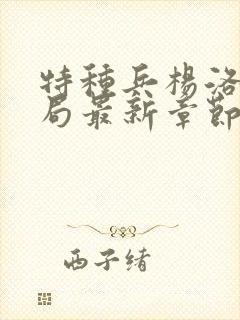 特種兵楊洛
局最新章節
西子緒